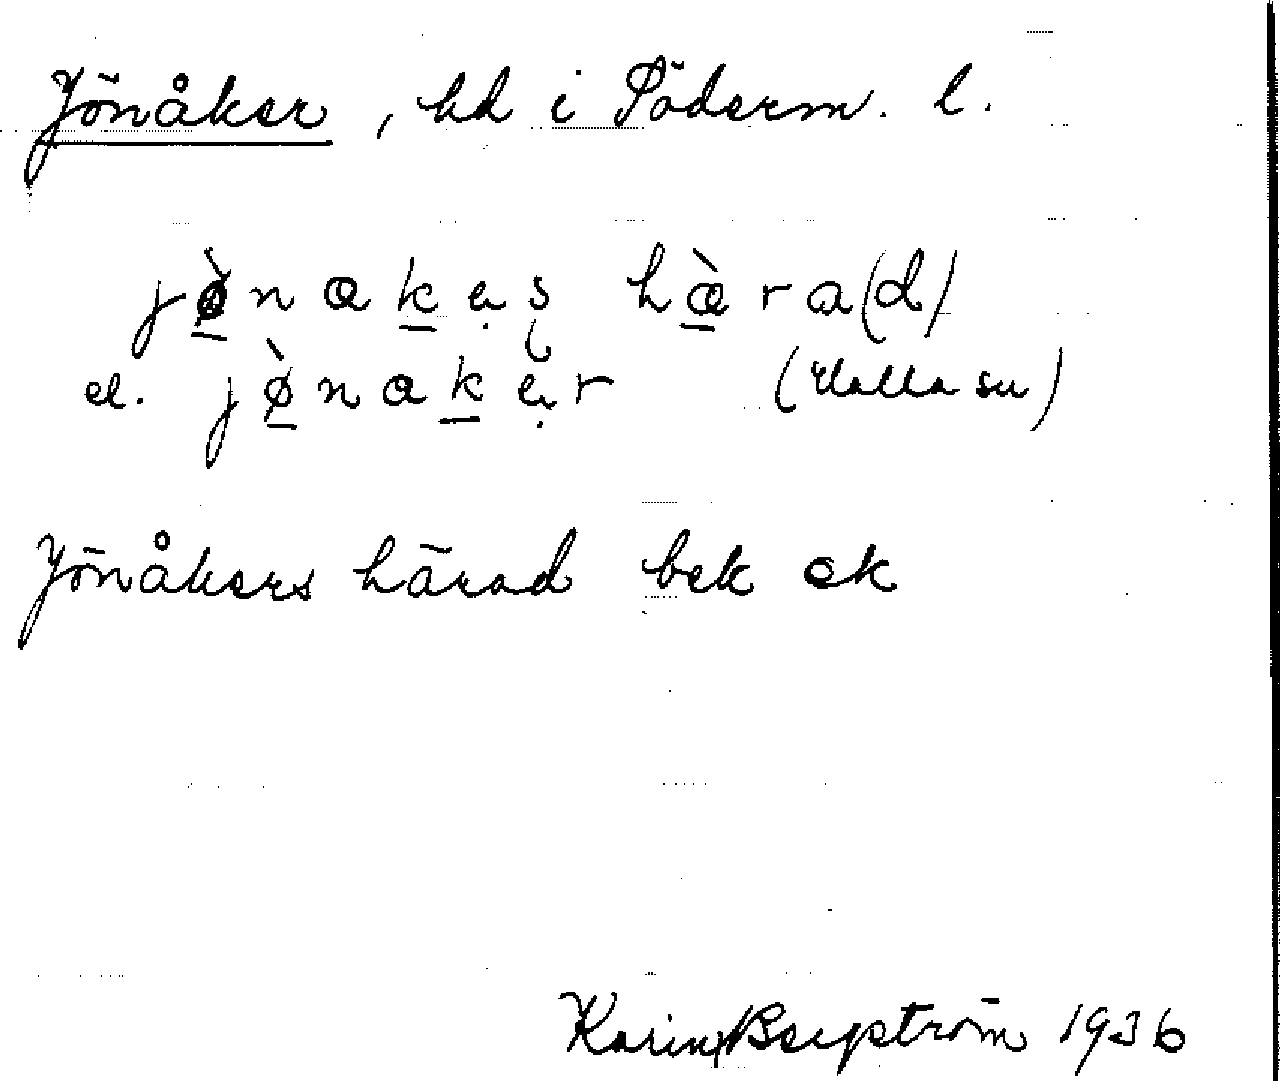 Jönåker, hd i Söderm. l.
jø̀nakes hæ̀ra(d)
el. jø̀naker (Halla sn)
Jönåkers härad bek ok
Karin Bergström 1936